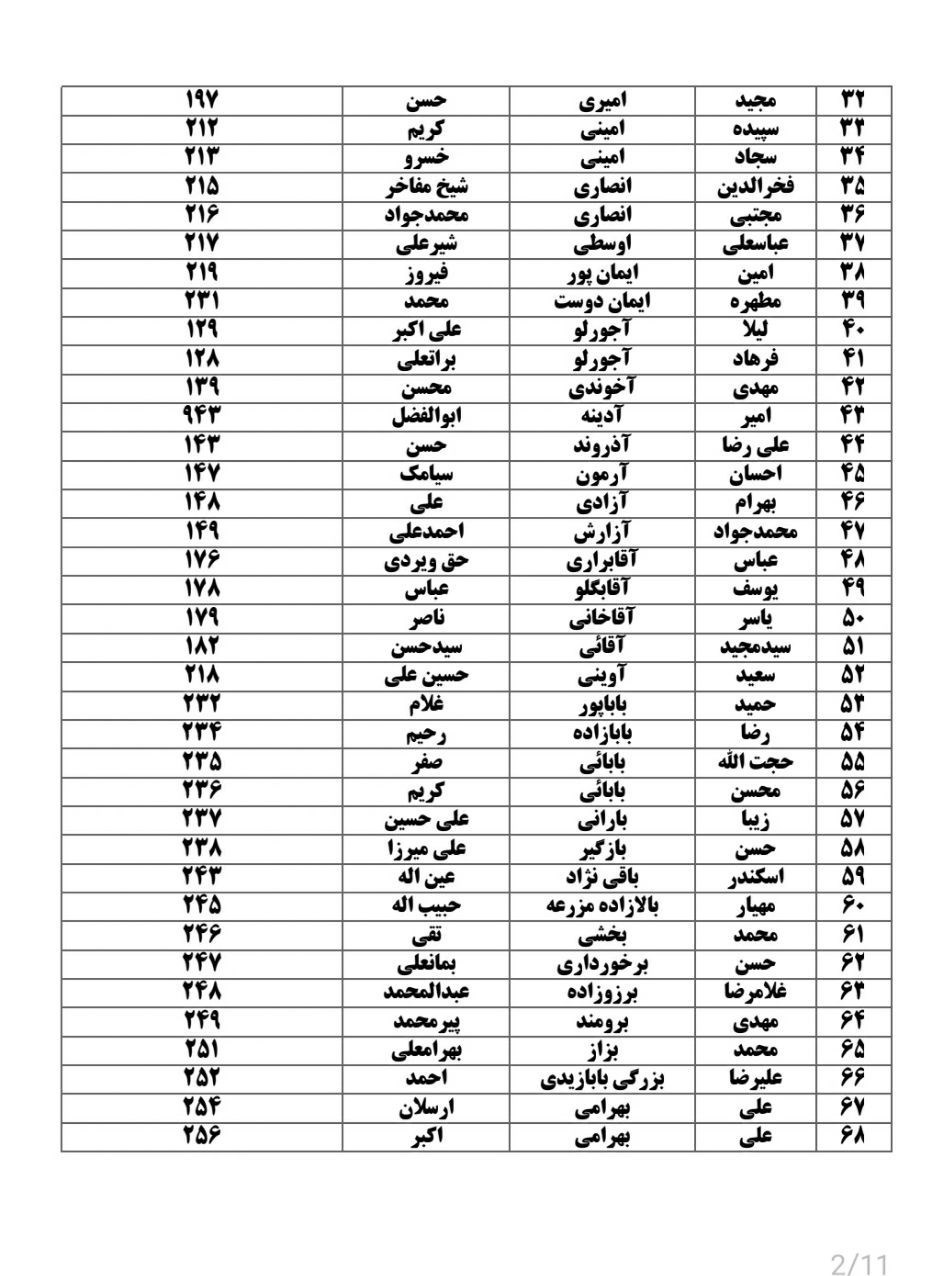 ۳۲ مجید امیری حسن ۱۹۷
۳۳ سپیده امینی کریم ۲۱۲
۳۴ سجاد امینی خسرو ۲۱۳
۳۵ فخرالدین انصاری شیخ مفاخر ۲۱۵
۳۶ مجتبی انصاری محمدجواد ۲۱۶
۳۷ عباسعلی اوسطی شیرعلی ۲۱۷
۳۸ امین ایمان پور فیروز ۲۱۹
۳۹ مطهره ایمان دوست محمد ۲۳۱
۴۰ لیلا آجورلو علی اکبر ۱۲۹
۴۱ فرهاد آجورلو براتعلی ۱۲۸
۴۲ مهدی آخوندی محسن ۱۳۹
۴۳ امیر آدینه ابوالفضل ۹۴۳
۴۴ علی رضا آذروند حسن ۱۴۳
۴۵ احسان آرمون سیامک ۱۴۷
۴۶ بهرام آزادی علی ۱۴۸
۴۷ محمدجواد آزارش احمدعلی ۱۴۹
۴۸ عباس آقابراری حق ویردی ۱۷۶
۴۹ یوسف آقابگلو عباس ۱۷۸
۵۰ یاسر آقاخانی ناصر ۱۷۹
۵۱ سیدمجید آقائی سیدحسن ۱۸۲
۵۲ سعید آوینی حسین علی ۲۱۸
۵۳ حمید باباپور غلام ۲۳۲
۵۴ رضا بابازاده رحیم ۲۳۴
۵۵ حجت الله بابائی صفر ۲۳۵
۵۶ محسن بابائی کریم ۲۳۶
۵۷ زیبا بارانی علی حسین ۲۳۷
۵۸ حسن بازگیر علی میرزا ۲۳۸
۵۹ اسکندر باقی نژاد عین اله ۲۴۳
۶۰ مهیار بالازاده مزرعه حبیب اله ۲۴۵
۶۱ محمد بخشی تقی ۲۴۶
۶۲ حسن برخورداری بمانعلی ۲۴۷
۶۳ غلامرضا برزوزاده عبدالمحمد ۲۴۸
۶۴ مهدی برومند پیرمحمد ۲۴۹
۶۵ محمد بزاز بهرامعلی ۲۵۱
۶۶ علیرضا بزرگی بابازیدی احمد ۲۵۲
۶۷ علی بهرامی ارسلان ۲۵۴
۶۸ علی بهرامی اکبر ۲۵۶
2/11